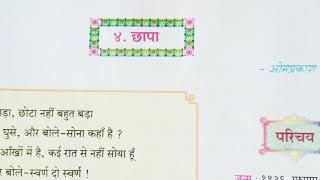 ४. छापा
- ओमप्रकाश
ड़ा, छोटा नहीं बहुत बड़ा
घुसे, और बोले-सोना कहाँ है ?
आँखों में है, कई रात से नहीं सोया हूँ
बोले-स्वर्ण दो स्वर्ण !
परिचय
जन्म : १९३६